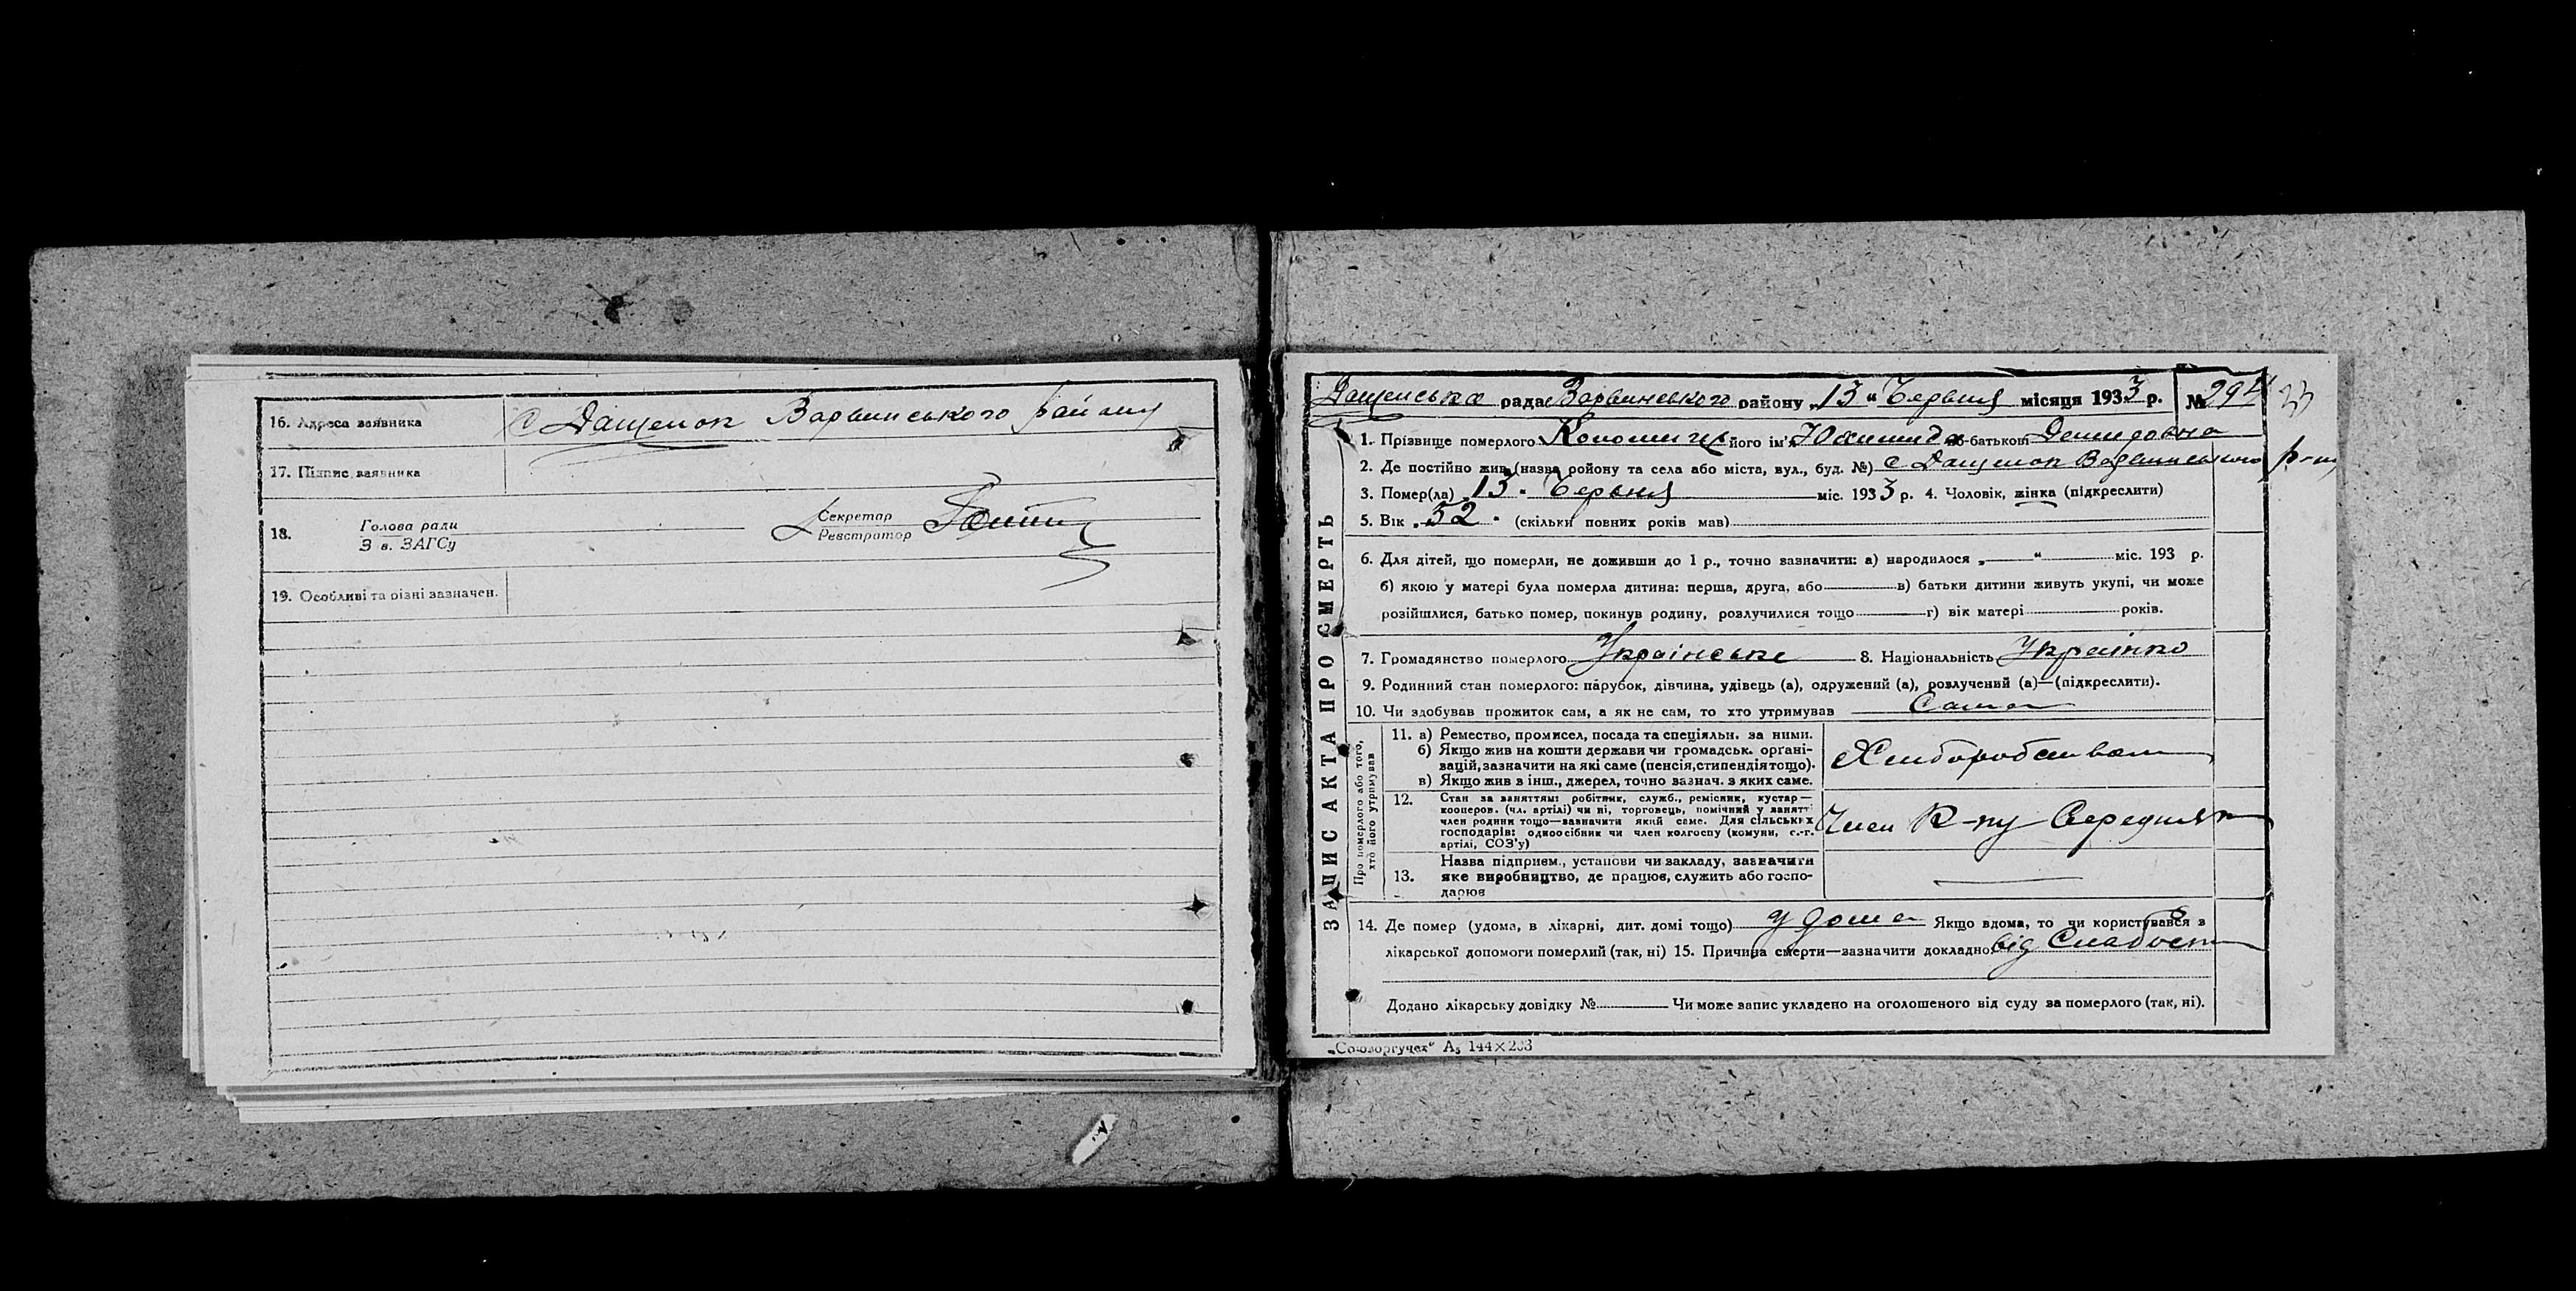 16. Адреса заявника с Дащенок Варвинського району
17. Підпис заявника
18. Голова ради Секретар
З в. ЗАГСу Реєстратор
19. Особливі та різні зазначен.
ЗАПИС АКТА ПРО СМЕРТЬ
Дащенська рада Варвинського району „13“ Червня місяця 1933 р. № 294
1. Прізвище померлого його ім'я по-батькові Демидовна
2. Де постійно жив (назва ройону та села або міста, вул., буд. №) с Дащенок Варвинського р-ну
3. Помер(ла) „13“ Червня міс. 1933 р. 4. Чоловік, жінка (підкреслити)
5. Вік „52“ (скільки повних років мав)
6. Для дітей, що померли, не доживши до 1 р., точно вазначити: а) народилося „ “ міс. 193 р.
б) якою у матері була померла дитина: перша, друга, або в) батьки дитини живуть укупі, чи може
розійшлися, батько помер, покинув родину, розлучилися тощо г) вік матері років.
7. Громадянство померлого Українське 8. Національність Українка
9. Родинний стан померлого: парубок, дівчина, удівець (а), одружений (а), розлучений (а)—(підкреслити).
10. Чи здобував прожиток сам, а як не сам, то хто утримував Сама
Про померлого або того, хто його утримував
11. а) Ремество, промисел, посада та спеціяльн. за ними.
б) Якщо жив на кошти держави чи громадськ. органі-
зацій, зазначити на які саме (пенсія, стипендія тощо).
в) Якщо жив з інш., джерел, точно зазнач. з яких саме.
Хліборобством
12. Стан за заняттям: робітник, служб., ремісник, кустар—
кооперов. (чл. артілі) чи ні, торговець, помічний у занятті
член родини тощо—зазначити який саме. Для сільських
господарів: одноосібник чи член колгоспу (комуни, с.-г.
артілі, СОЗ'у)
Член К-пу Середняк
13. Назва підприєм., установи чи закладу, зазначити
яке виробництво, де працює, служить або госпо-
дарює
14. Де помер (удома, в лікарні, дит. домі тощо) у дома Якщо вдома, то чи користувався з
лікарської допомоги померлий (так, ні) 15. Причина смерти—зазначити докладно: від Слабости
Додано лікарську довідку № Чи може запис укладено на оголошеного від суду за померлого (так, ні).
„Союзоргучет“ А₅ 144×203